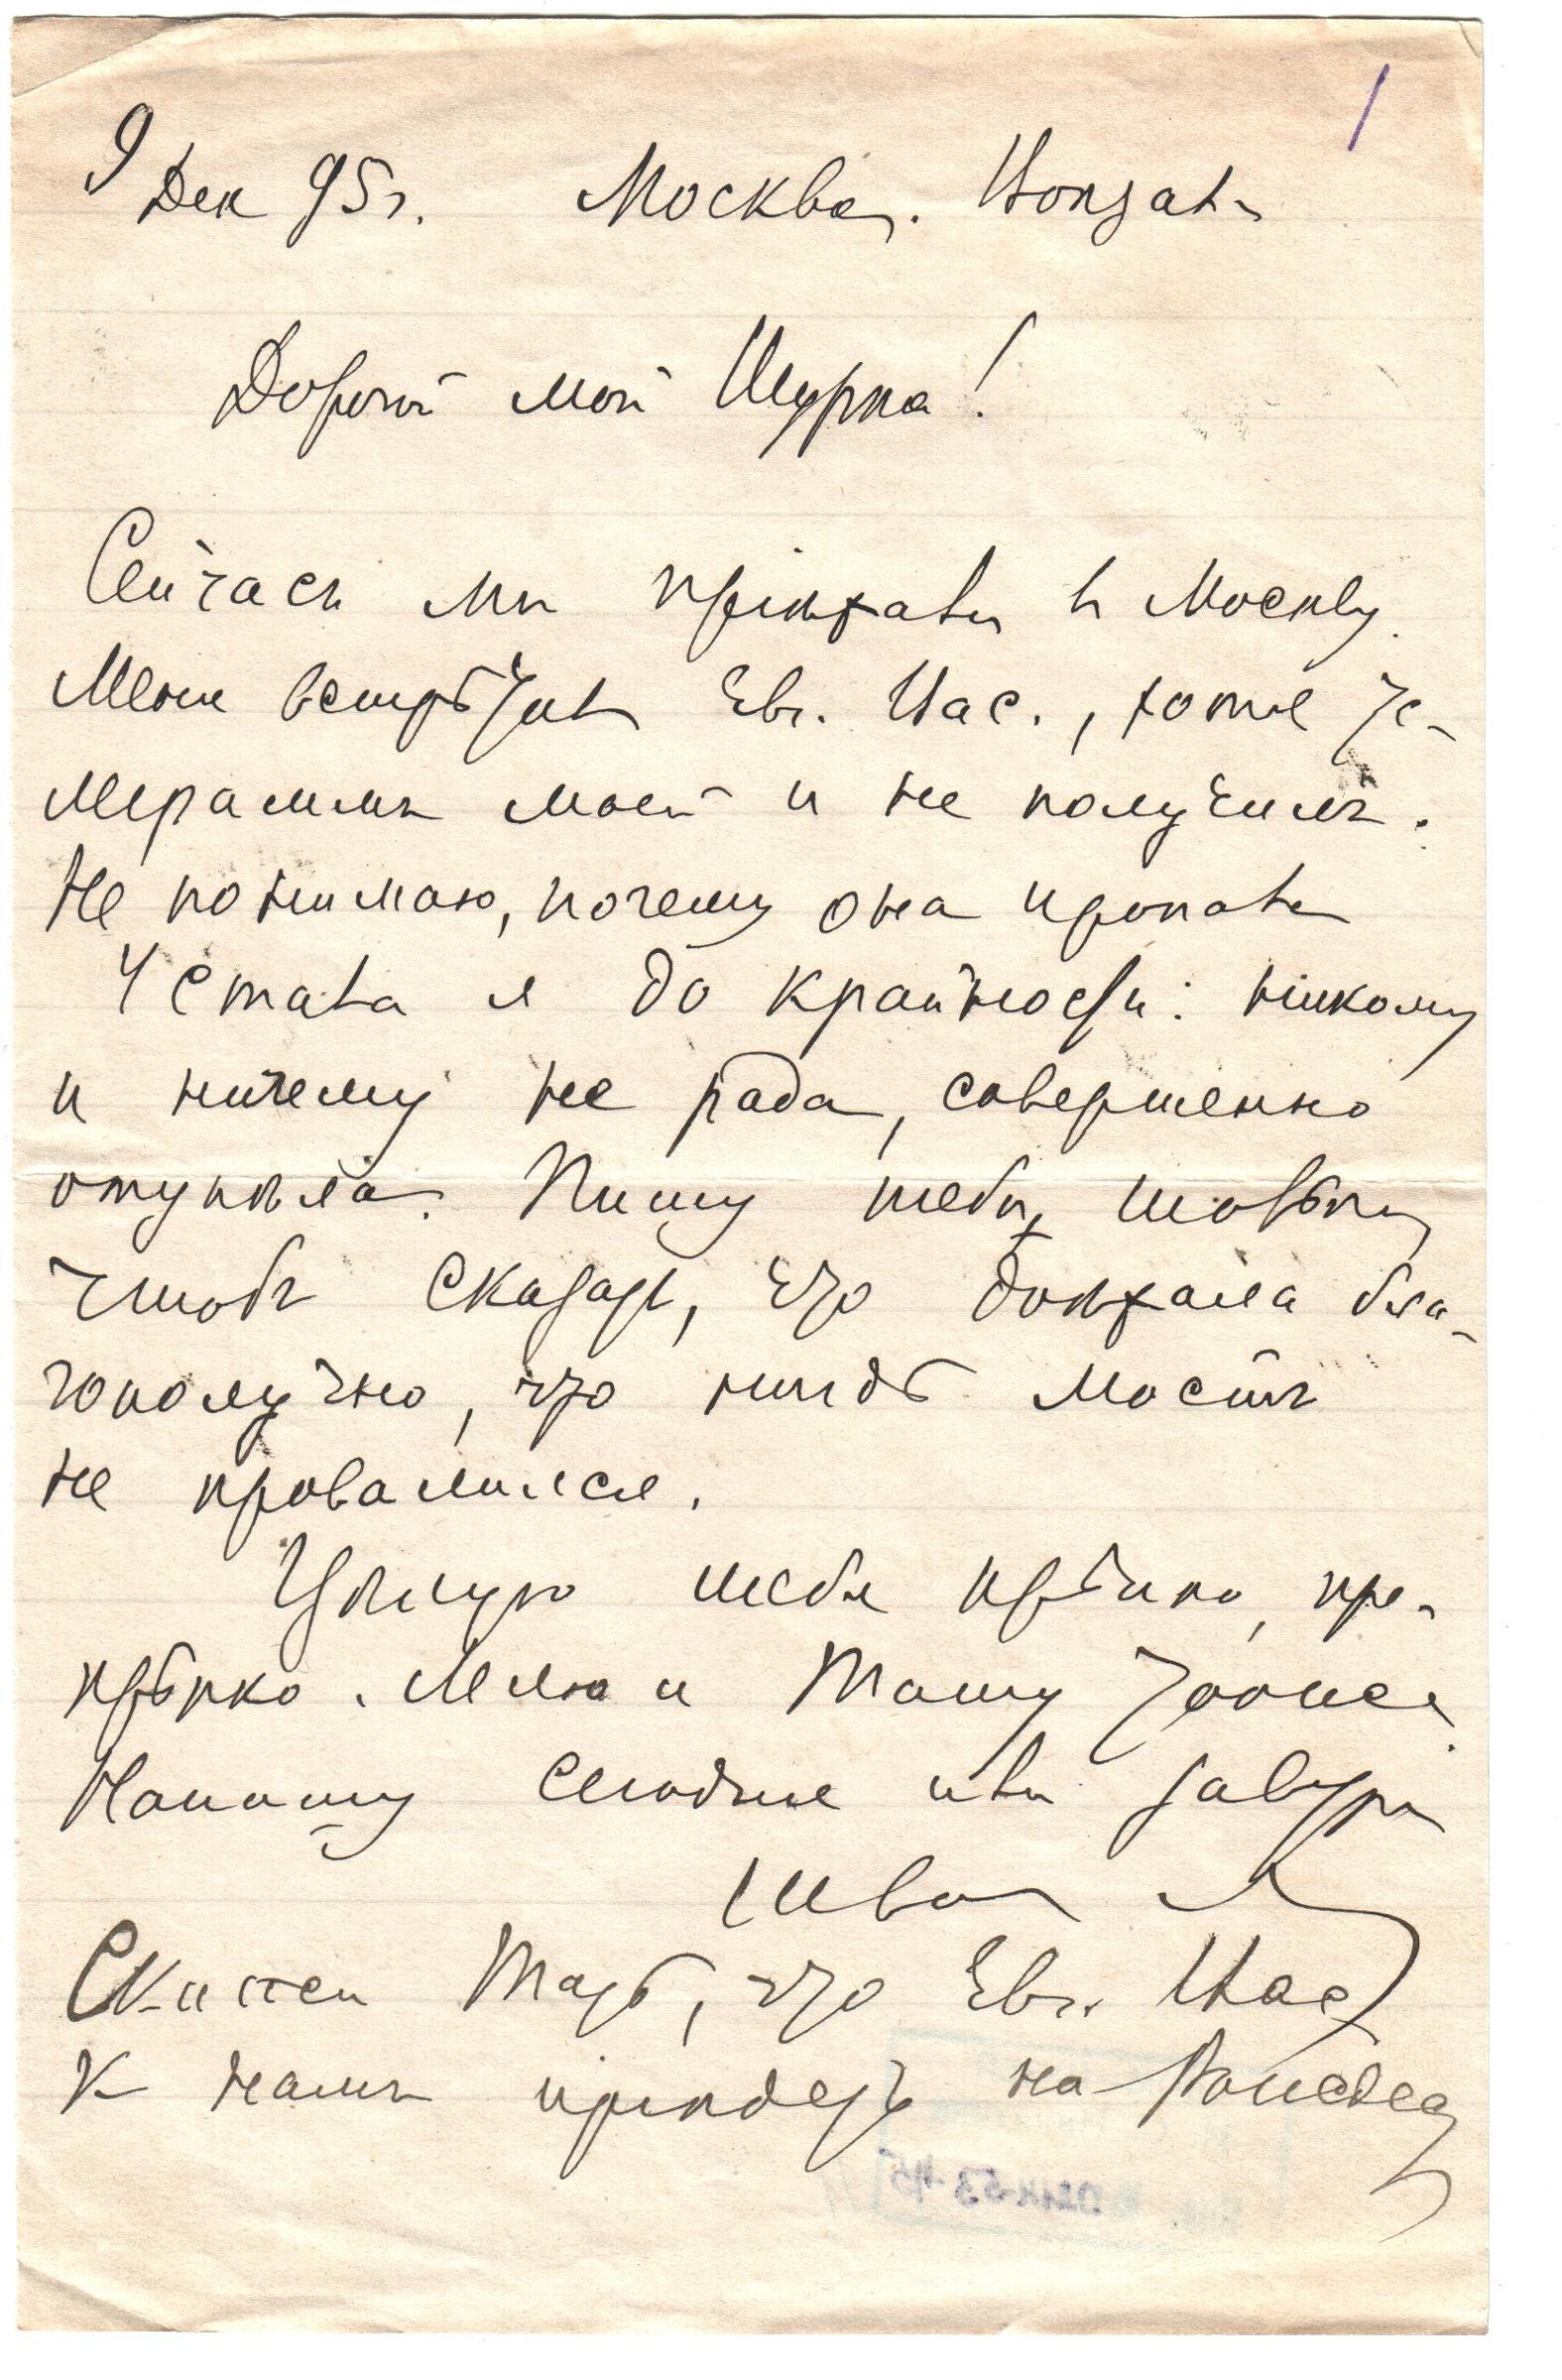 9 Дек 95 г. Москва. Вокзалъ
Дорогой мой Шурка!
Сейчасъ мы пріѣхали въ Москву.
Меня встрѣтилъ Евг. Иас., хотя те-
леграммы моей и не получилъ.
Не понимаю, почему она пропала
Устала я до крайности: никому
и ничему не рада, совершенно
отупѣла. Пишу тебѣ, только
чтобъ сказать, что доѣхала бла-
гополучно, что нигдѣ мостъ
не провалился.
Цѣлую тебя крѣпко, пре-
крѣпко. Лелю и Ташу тоже.
Напишу сегодня или завтра
Скажи Татѣ, что Евг. Иас
къ намъ пріѣдетъ на
1